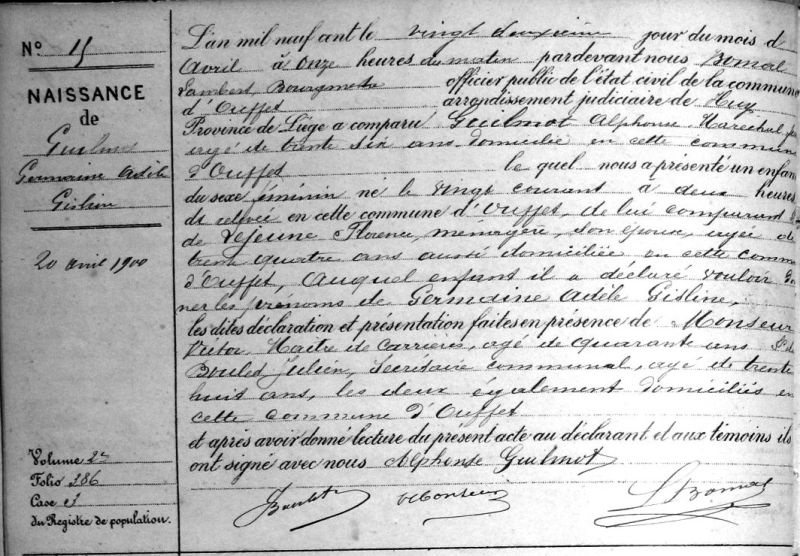 N° 15
NAISSANCE
de
Guilmot
Germaine Adèle
Gisline
20 avril 1900
Volume 2
Folio 386
Case
du Registre de population.
L'an mil neuf cent le vingt deuxième jour du mois d
Avril à Onze heures du matin pardevant nous Bomal
Lambert, Bourgmestre officier public de l'état civil de la commune
d'Ouffet arrondissement judiciaire de Huy
Province de Liége a comparu Guilmot Alphonse, Maréchal
agé de trente six ans domicilié en cette commune
d'Ouffet le quel nous a présenté un enfant
du sexe féminin né le vingt courant à deux heures
de relevée en cette commune d'Ouffet, de lui comparant &
de Lejeune Florence, menagère, son epouse, agée de
trente quatre ans aussi domiciliée en cette commune
d'Ouffet, Auquel enfant il a déclaré vouloir don
ner les prénoms de Germaine Adèle Gisline,
les dites déclaration et présentation faites en présence de Monseur
Victor, Maître de Carrières, agé de quarante ans &
Boulet Julien, Secrétaire communal, agé de trente
huit ans, les deux également domiciliés en
cette commune d'Ouffet
et après avoir donné lecture du présent acte au déclarant et aux témoins ils
ont signé avec nous Alphonse Guilmot
JBoulet VMonseur LBomal